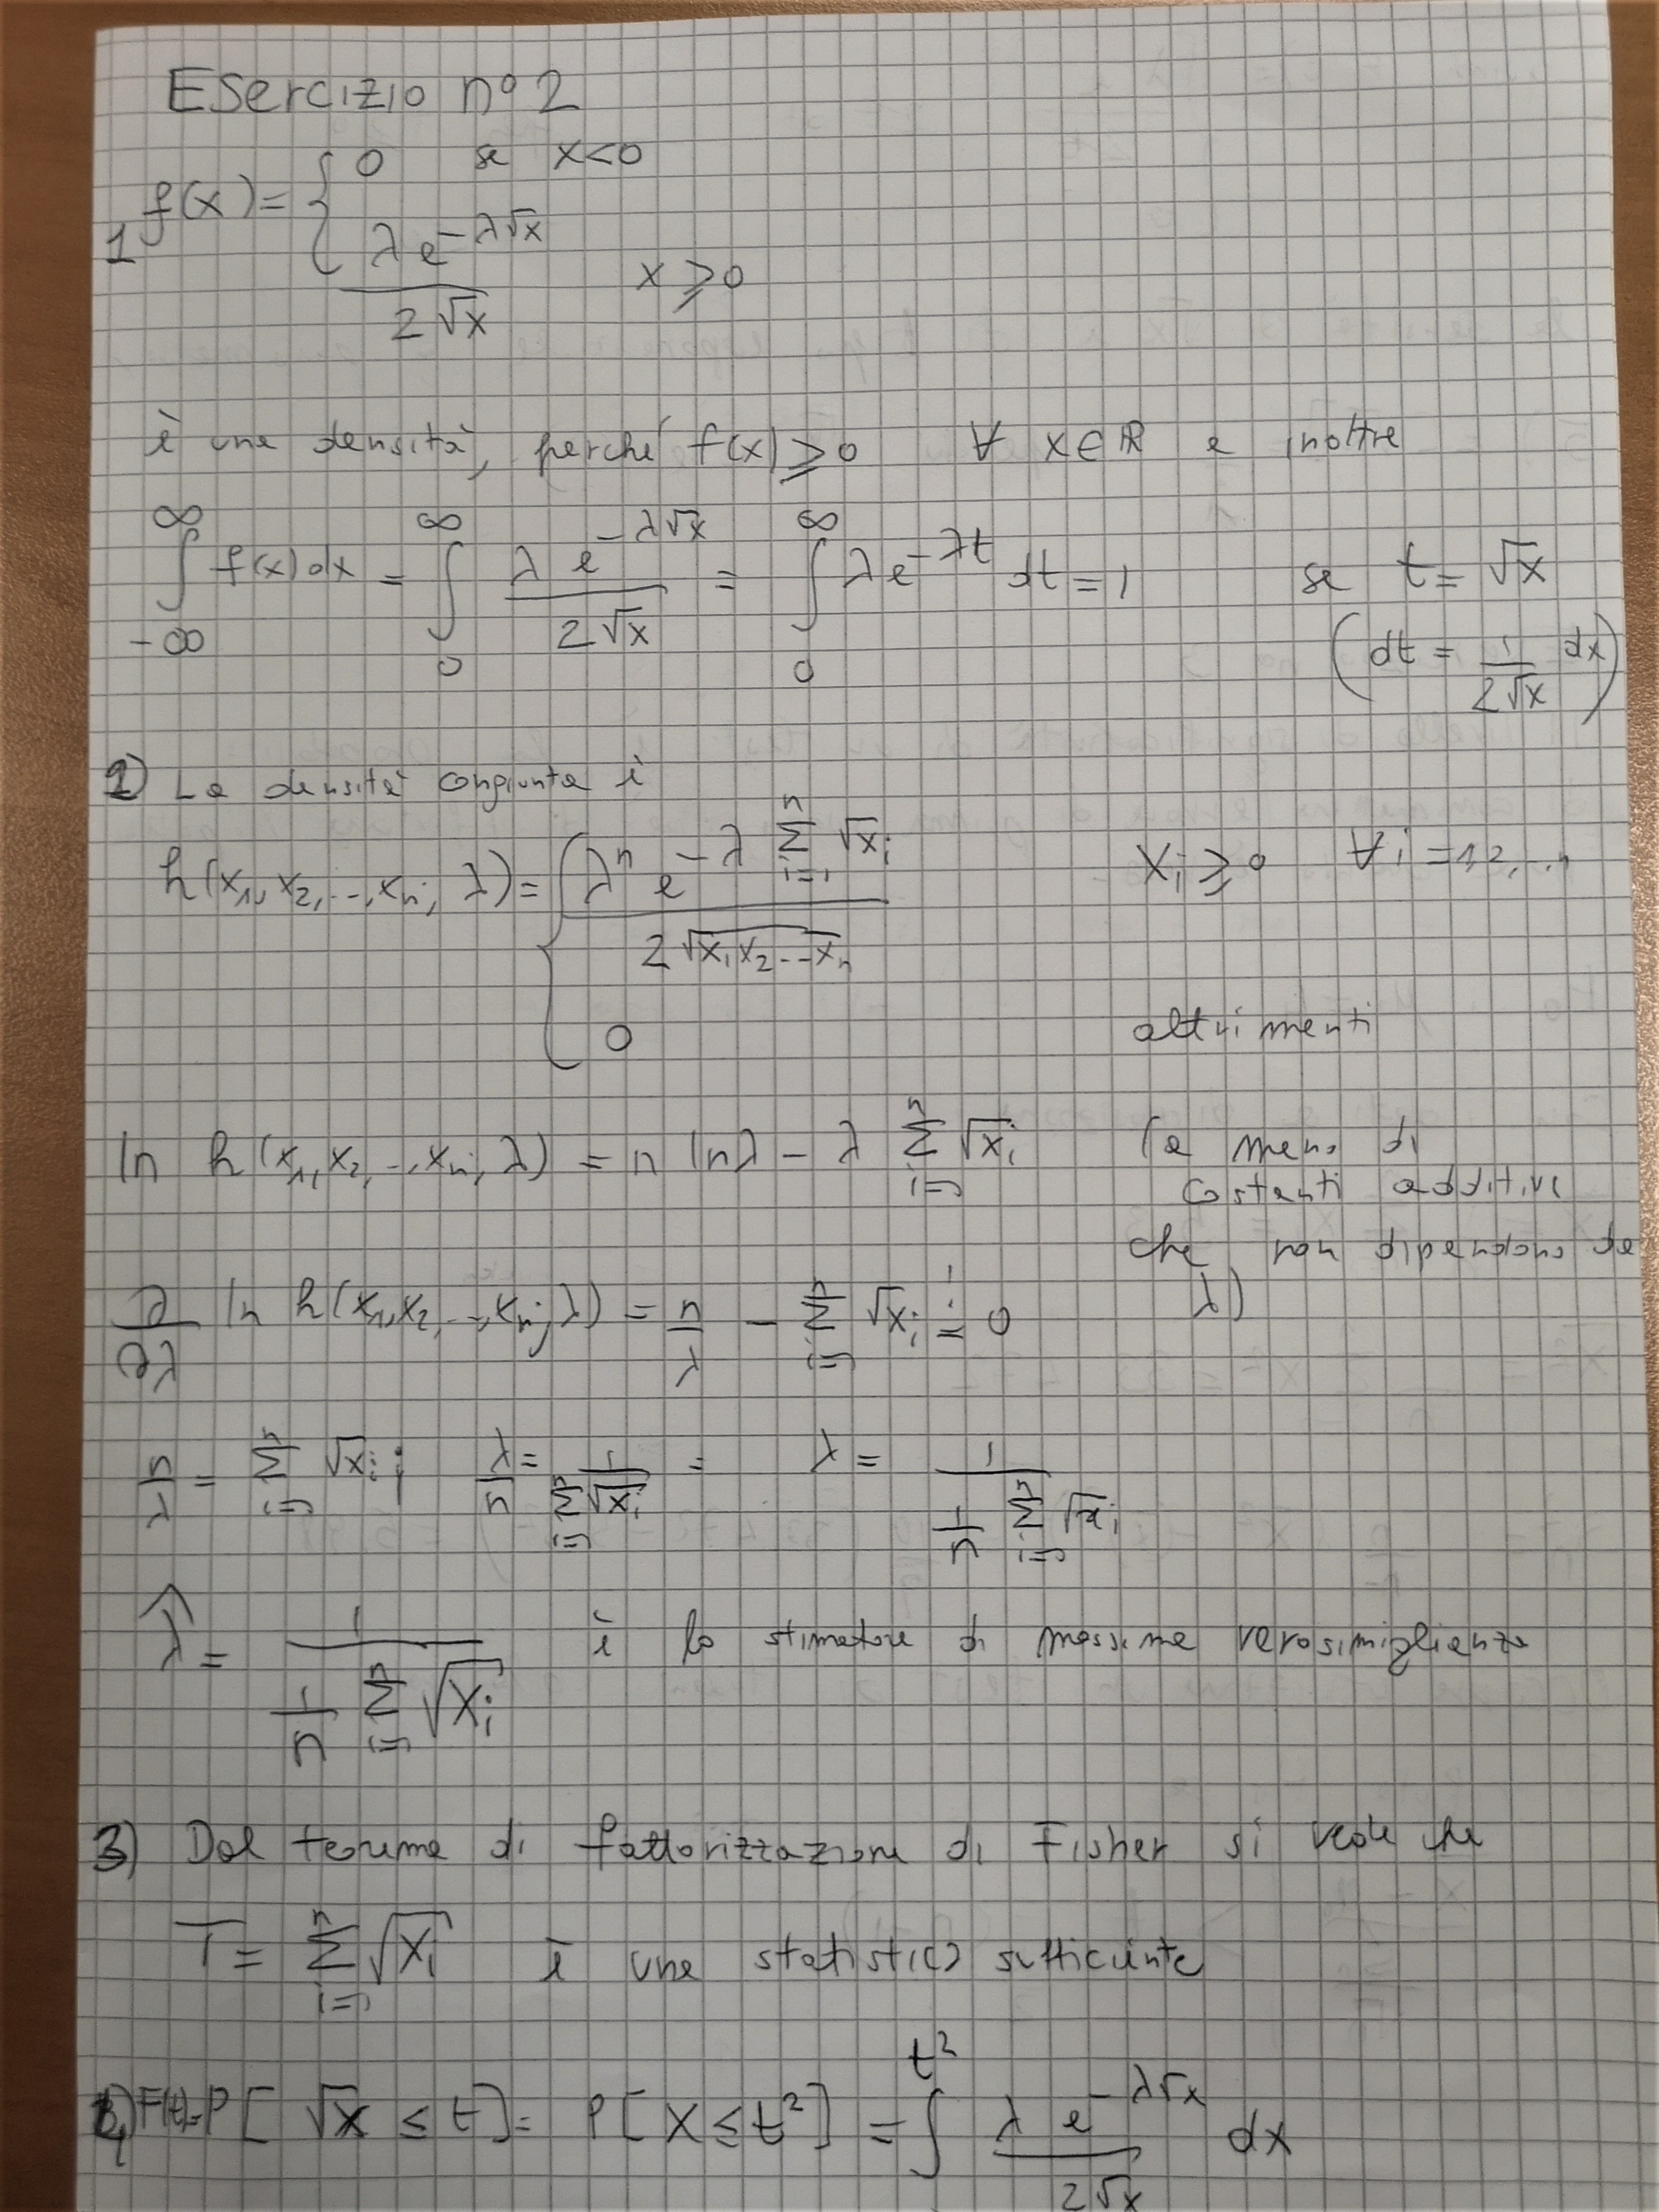 Esercizio n° 2
1 f(x) = { 0 se x<0
λ e^{-λ√x} / 2√x x ⩾ 0
è una densità, perché f(x) ⩾ 0 ∀ x∈ℝ e inoltre
∫_{-∞}^{∞} f(x) dx = ∫_0^∞ λ e^{-λ√x} / 2√x = ∫_0^∞ λ e^{-λt} dt = 1 se t = √x
(dt = 1/2√x dx)
2) La densità congiunta è
h(x_1, x_2, .., x_n; λ) = { λ^n e^{-λ Σ_{i=1}^n √x_i} / 2√x_1 x_2 ... x_n X_i ⩾ 0 ∀ i = 1,2,..,n
0 altrimenti
ln h(x_1, x_2, .., x_n; λ) = n lnλ - λ Σ_{i=1}^n √x_i (a meno di
costanti additive
che non dipendono da
λ)
∂/∂λ ln h(x_1, x_2, .., x_n; λ) = n/λ - Σ_{i=1}^n √x_i = 0
n/λ = Σ_{i=1}^n √x_i ; λ/n = 1 / Σ_{i=1}^n √x_i = λ = 1 / (1/n Σ_{i=1}^n √x_i)
λ̂ = 1 / (1/n Σ_{i=1}^n √X_i) è lo stimatore di massima verosimiglianza
3) Dal teorema di fattorizzazione di Fisher si vede che
T = Σ_{i=1}^n √X_i è una statistica sufficiente
4) F(t)=P[√X ≤ t] = P[X ≤ t²] = ∫^{t²} λ e^{-λ√x} / 2√x dx